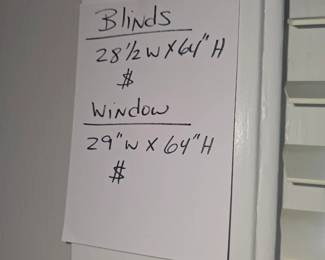 Blinds
28 1/2 W X 64" H
$
Window
29" W X 64" H
$